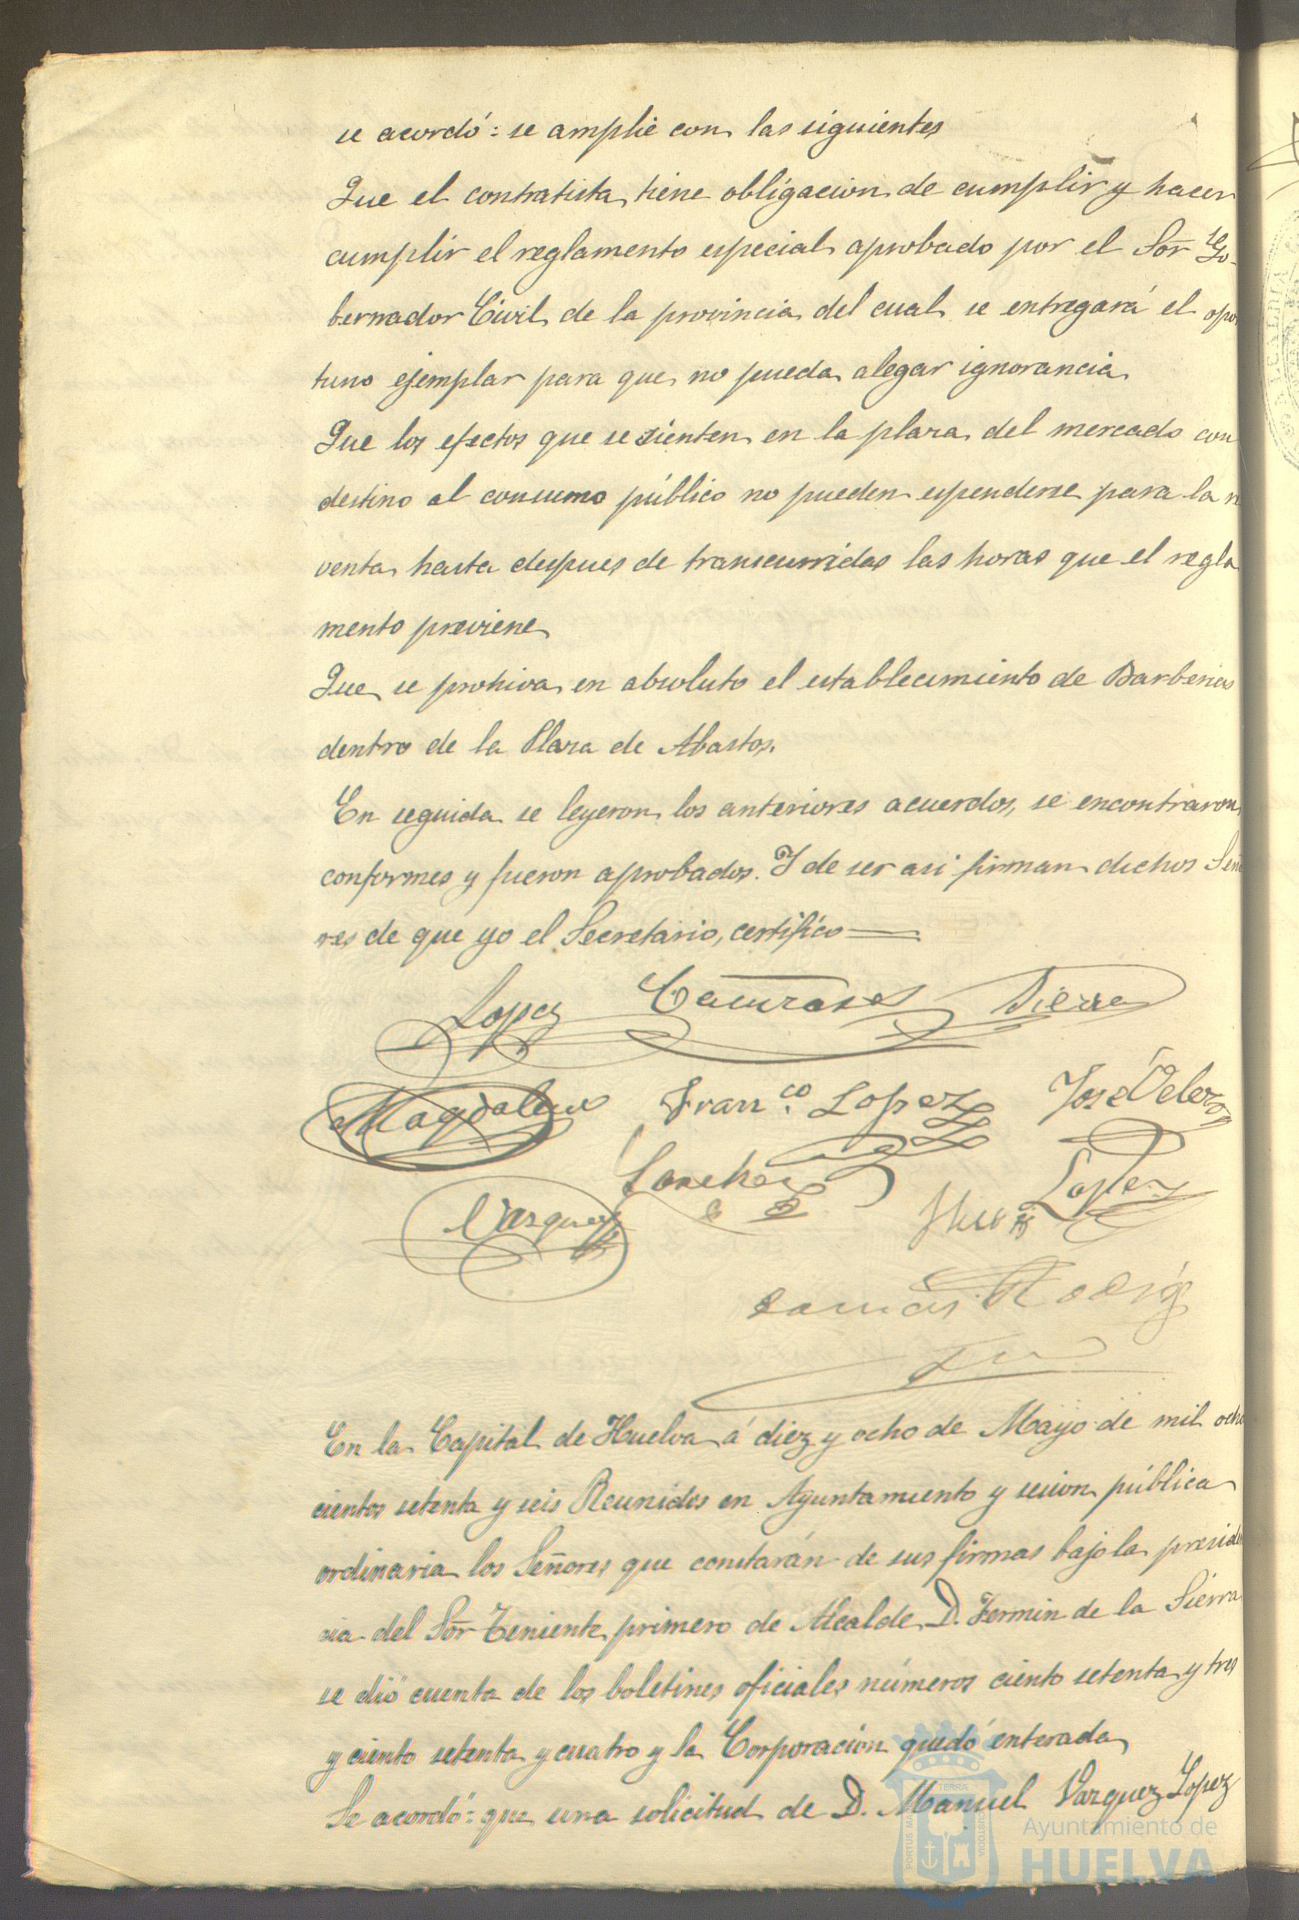 se acordó: se amplie con las siguientes
Que el contratista tiene obligacion de cumplir y hacer
cumplir el reglamento especial aprobado por el Sor Go-
bernador Civil de la provincia del cual se entregará el opor
tuno ejemplar para que no pueda alegar ignorancia
Que los efectos que se sienten en la plaza del mercado con
destino al consumo público no pueden espenderse para la re
venta hasta despues de transcurridas las horas que el regla
mento previene
Que se prohiva en absoluto el establecimiento de Barberias
dentro de la Plaza de Abastos.
En seguida se leyeron los anteriores acuerdos, se encontraron
conformes y fueron aprobados. Y de ser asi firman dichos Seño
res de que yo el Secretario, certifico
Lopez Sierra
Magdalena Fran.co Lopez José Velez
Sanchez Lopez
Vazquez
En la Capital de Huelva á diez y ocho de Mayo de mil ocho
cientos setenta y seis Reunidos en Ayuntamiento y sesion pública
ordinaria los Señores que constarán de sus firmas bajo la presiden
cia del Sor Teniente primero de Alcalde D. Fermin de la Sierra
se dió cuenta de los boletines oficiales números ciento setenta y tres
y ciento setenta y cuatro y la Corporacion quedó enterada
Se acordó: que una solicitud de D. Manuel Vazquez Lopez
Ayuntamiento de
HUELVA